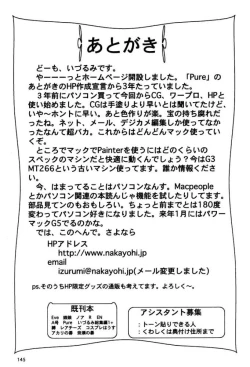 あとがき
どーも、いづるみです。
やーーーっとホームページ開設しました。「Pure」の
あとがきのHP作成宣言から3年たっていました。
3年前にパソコン買って今回からCG、ワープロ、HPと
使い始めました。CGは手塗りより早いとは聞いてたけど、
いや〜ホントに早い。あと色作りが楽。宝の持ち腐れだ
ったね。ネット、メール、デジカメ編集しか使ってなか
ったなんて超バカ。これからはどんどんマック使ってい
くぞ。
ところでマックでPainterを使うにはどのくらいの
スペックのマシンだと快適に動くんでしょう？今はG3
MT266という古いマシン使ってます。誰か情報くださ
い。
今、はまってることはパソコンなんす。Macpeople
とかパソコン関連の本読んじゃ機能を試したりしてます。
部品見てンのもおもしろい。ちょっと前までとは180度
変わってパソコン好きになりました。来年1月にはパワー
マックG5でるのかな。
では、このへんで。さよなら
HPアドレス
http://www.nakayohi.jp
email
izurumi@nakayohi.jp(メール変更しました)
ps.そのうちHP限定グッズの通販も考えてます。よろしく〜。
既刊本
アシスタント募集
：トーン貼りできる人
：くわしくは奥付け住所まで
145